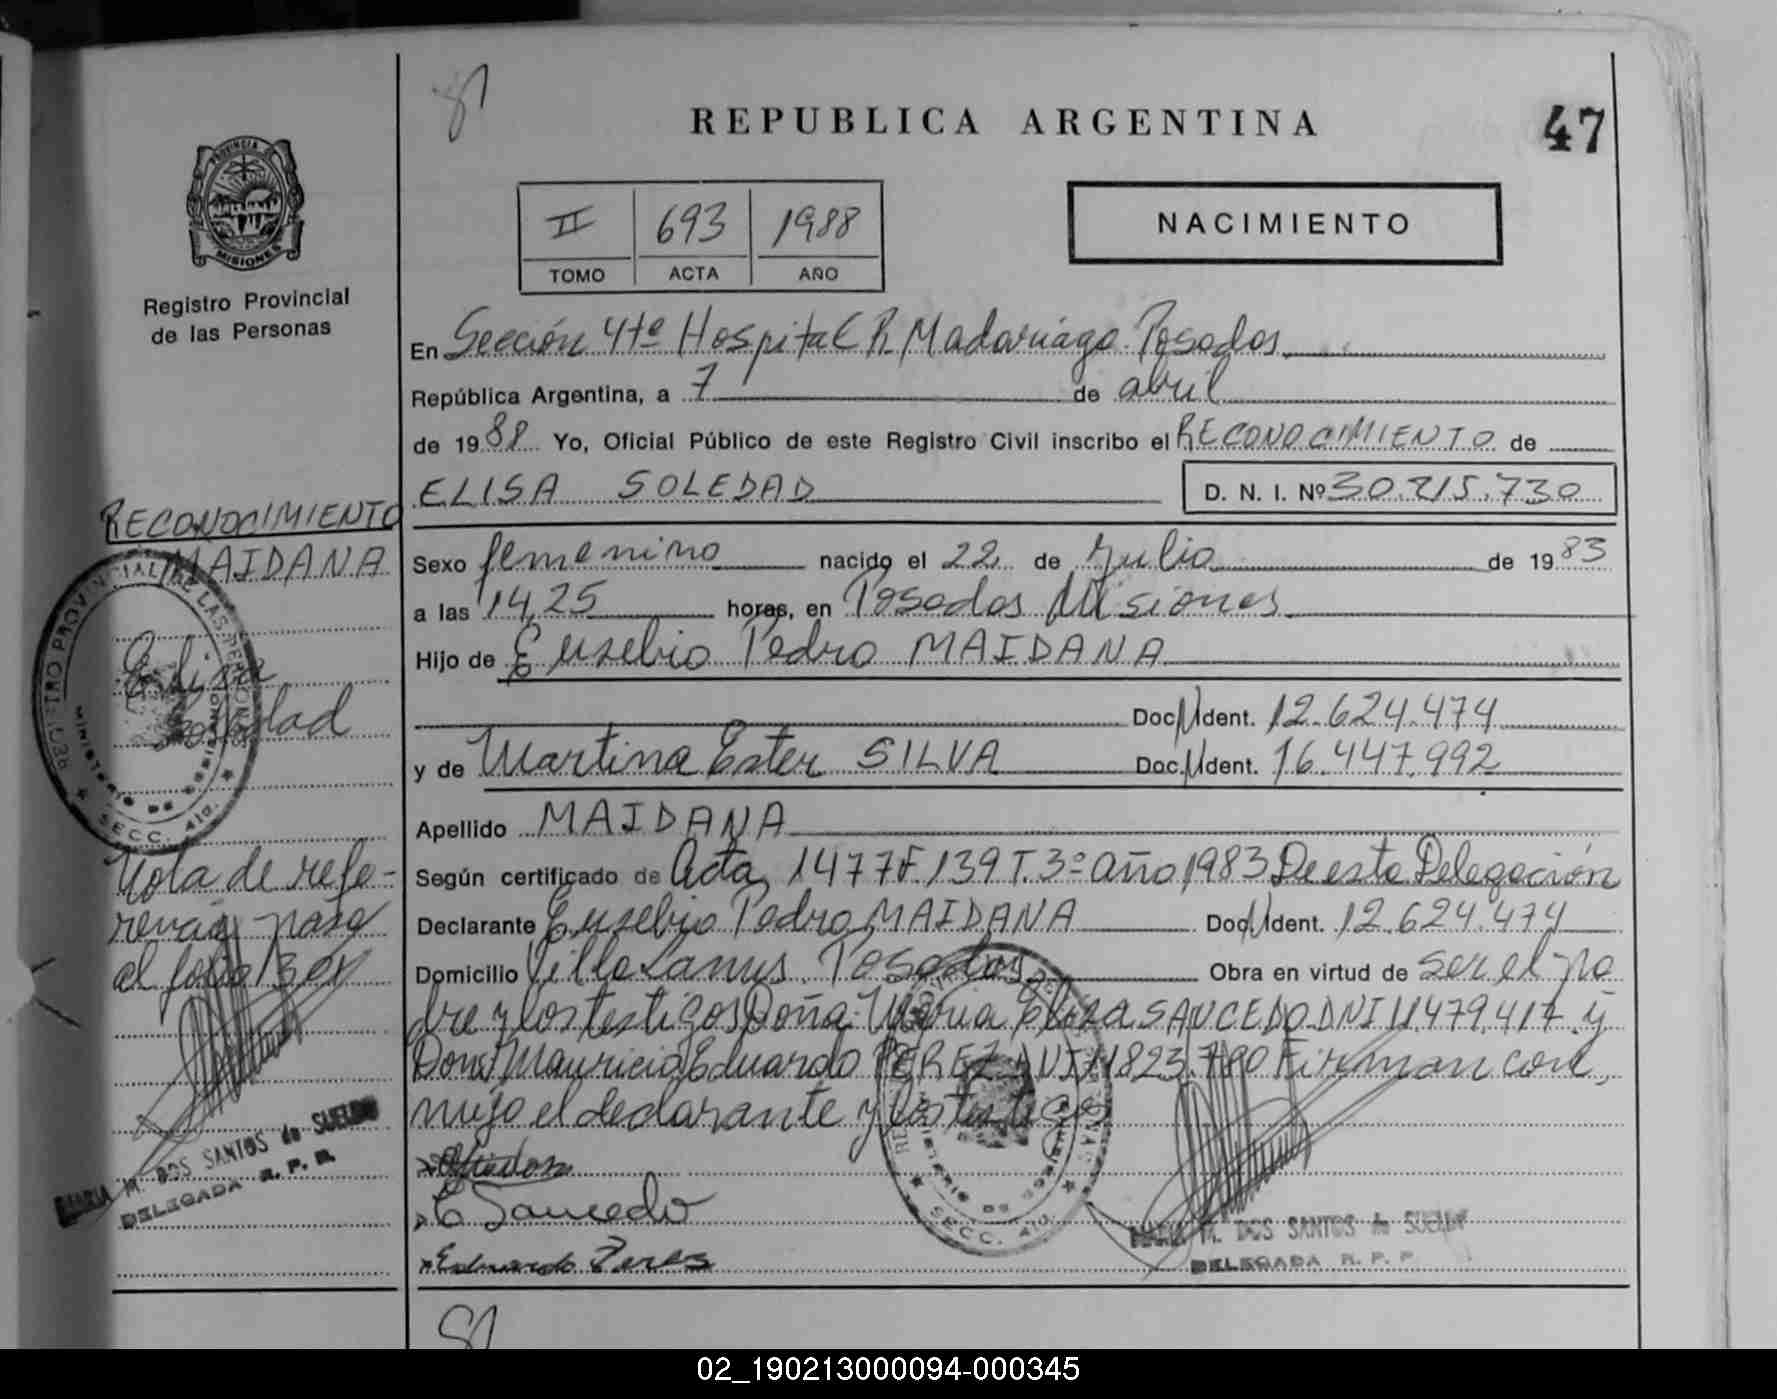 REPUBLICA ARGENTINA
47
II 693 1988
TOMO ACTA AÑO
NACIMIENTO
PROVINCIA DE
MISIONES
Registro Provincial
de las Personas
En Sección 4ta Hospital R. Madariaga Posadas
República Argentina, a 7 de abril
de 1988 Yo, Oficial Público de este Registro Civil inscribo el RECONOCIMIENTO de
ELISA SOLEDAD D. N. I. Nº 30.215.730
Sexo femenino nacido el 22 de Julio de 1983
a las 14,25 horas, en Posadas Misiones
Hijo de Eusebio Pedro MAIDANA
Doc. Ident. 12.624.474
y de Martina Ester SILVA Doc. Ident. 16.447.992
Apellido MAIDANA
Según certificado de Acta 1477 F. 139 T. 3º año 1983 De esta Delegación
Declarante Eusebio Pedro MAIDANA Doc. Ident. 12.624.474
Domicilio Villa Lanus Posadas Obra en virtud de ser el pa
dre y los testigos Doña SAUCEDO DNI 11.479.417 y
Don Mauricio Eduardo PEREZ DNI Firman con
migo el declarante y los testigos
E Saucedo
Eduardo Peres
RECONOCIMIENTO
MAIDANA
Elisa
Soledad
Nota de refe-
rencia pasa
al folio
REGISTRO PROVINCIAL DE LAS PERSONAS
MINISTERIO DE
SECC. 4ta.
MARIA M. DOS SANTOS de SUELDO
DELEGADA R. P. P.
SECC. 4ta.
MARIA M. DOS SANTOS de SUELDO
DELEGADA R. P. P.
02_190213000094-000345